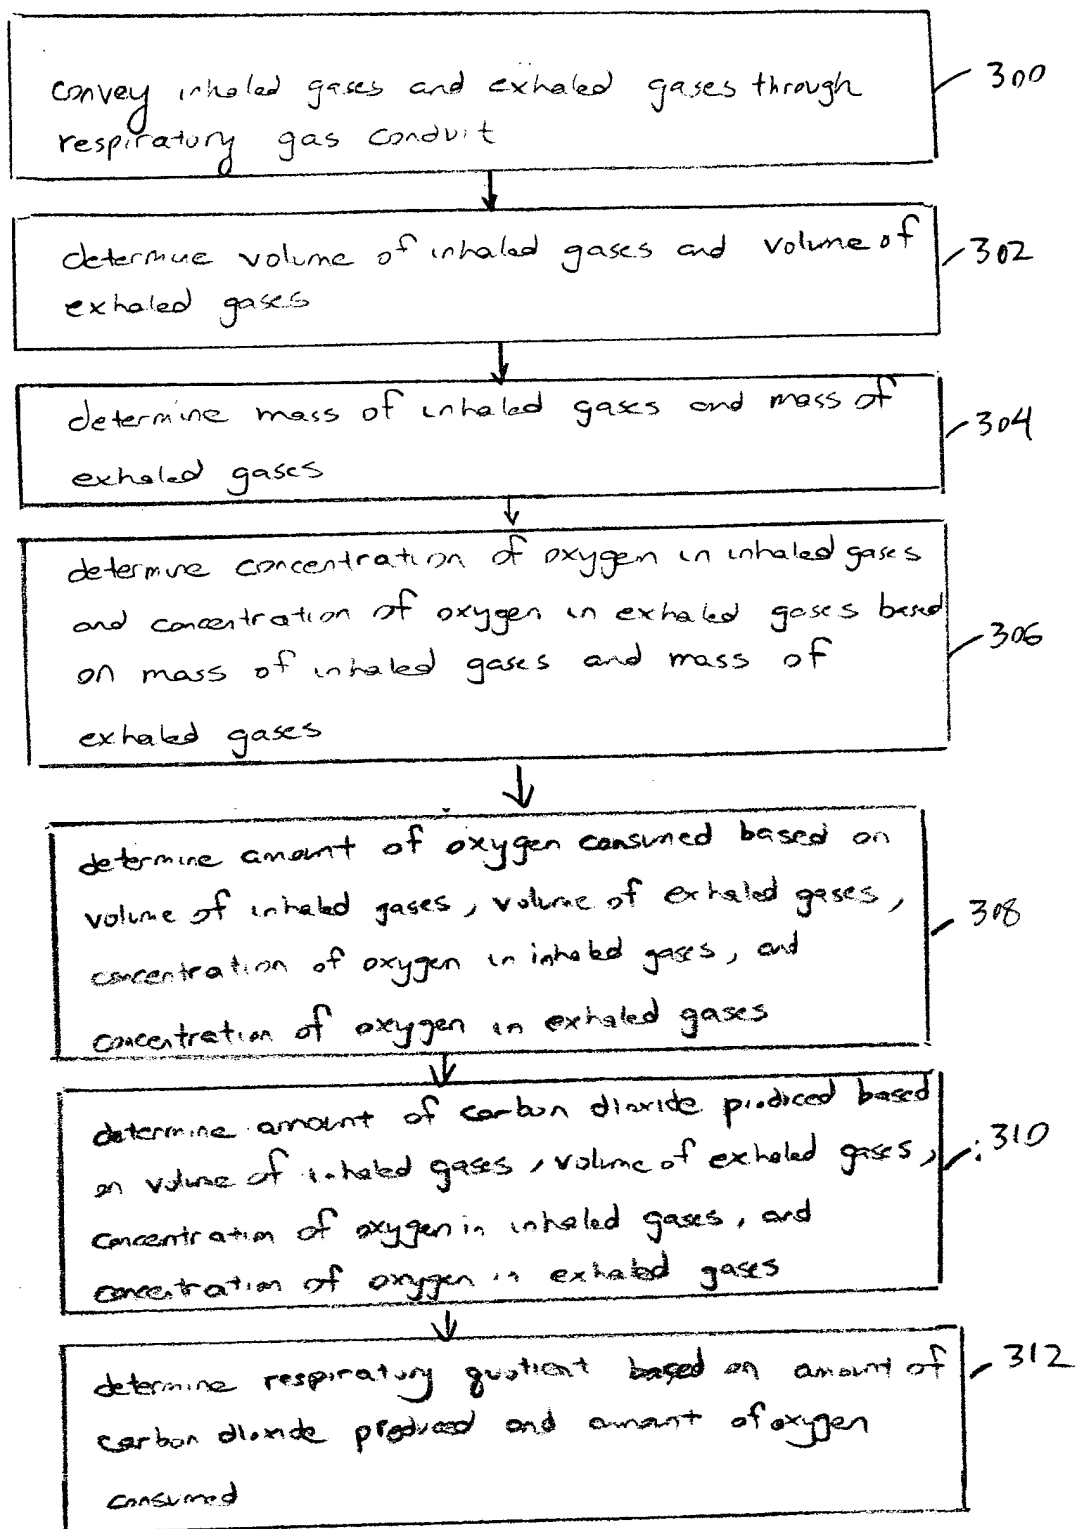 convey inhaled gases and exhaled gases through
respiratory gas conduit
300
determine volume of inhaled gases and volume of
exhaled gases
302
determine mass of inhaled gases and mass of
exhaled gases
304
determine concentration of oxygen in inhaled gases
and concentration of oxygen in exhaled gases based
on mass of inhaled gases and mass of
exhaled gases
306
determine amount of oxygen consumed based on
volume of inhaled gases, volume of exhaled gases,
concentration of oxygen in inhaled gases, and
concentration of oxygen in exhaled gases
308
determine amount of carbon dioxide produced based
on volume of inhaled gases, volume of exhaled gases,
concentration of oxygen in inhaled gases, and
concentration of oxygen in exhaled gases
310
determine respiratory quotient based on amount of
carbon dioxide produced and amount of oxygen
consumed
312